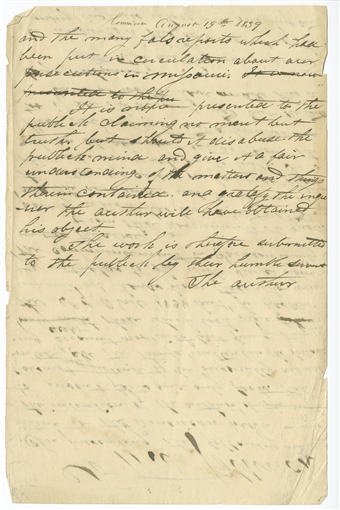 August 19th 1839
and the many fals reports which had
been put in circulation about our
persecutions in missourie It is now
presented to the pu
It is presented to the
publick claiming no merit but
truth, but should it disabuse the
publick mind and give it a fair
understanding of the matters and things
therein contained. and enable the
the author will have obtained
his object
The work is therefore submitted
to the publick by their humble servant
The author